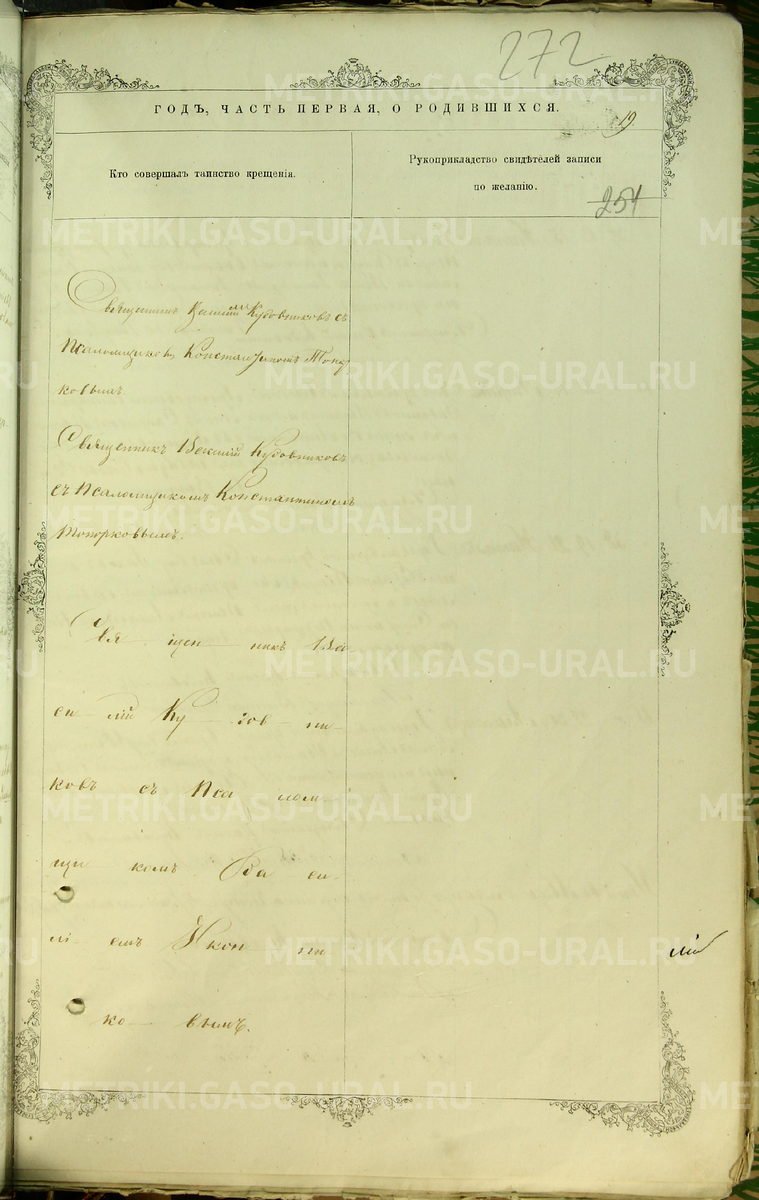 272
ГОДЪ, ЧАСТЬ ПЕРВАЯ, О РОДИВШИХСЯ.
19
Кто совершалъ таинство крещенія.
Рукоприкладство свидѣтелей записи
по желанію.
254
Священникъ Василій Кудовниковъ съ
Псаломщикомъ Константиномъ Топор
ковымъ.
Священникъ Василій Кудовниковъ
съ Псаломщикомъ Константиномъ
Топорковымъ.
Свя щен никъ Ва
си лій Ку дов ни
ковъ съ Пса лом
щи комъ Ва си
лі емъ Икон ни
ко вымъ.
METRIKI.GASO-URAL.RU